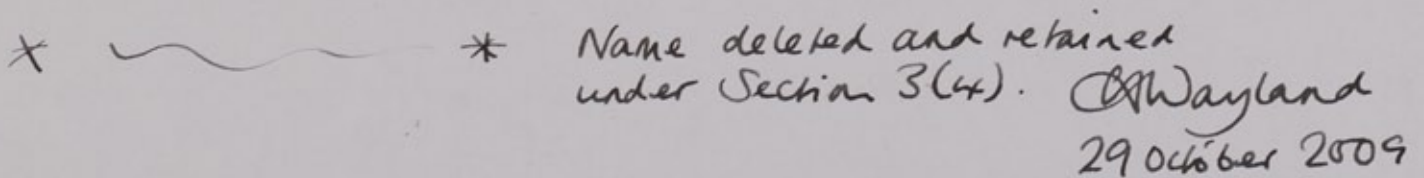 * * Name deleted and retained
under Section 3(4). Wayland
29 October 2009